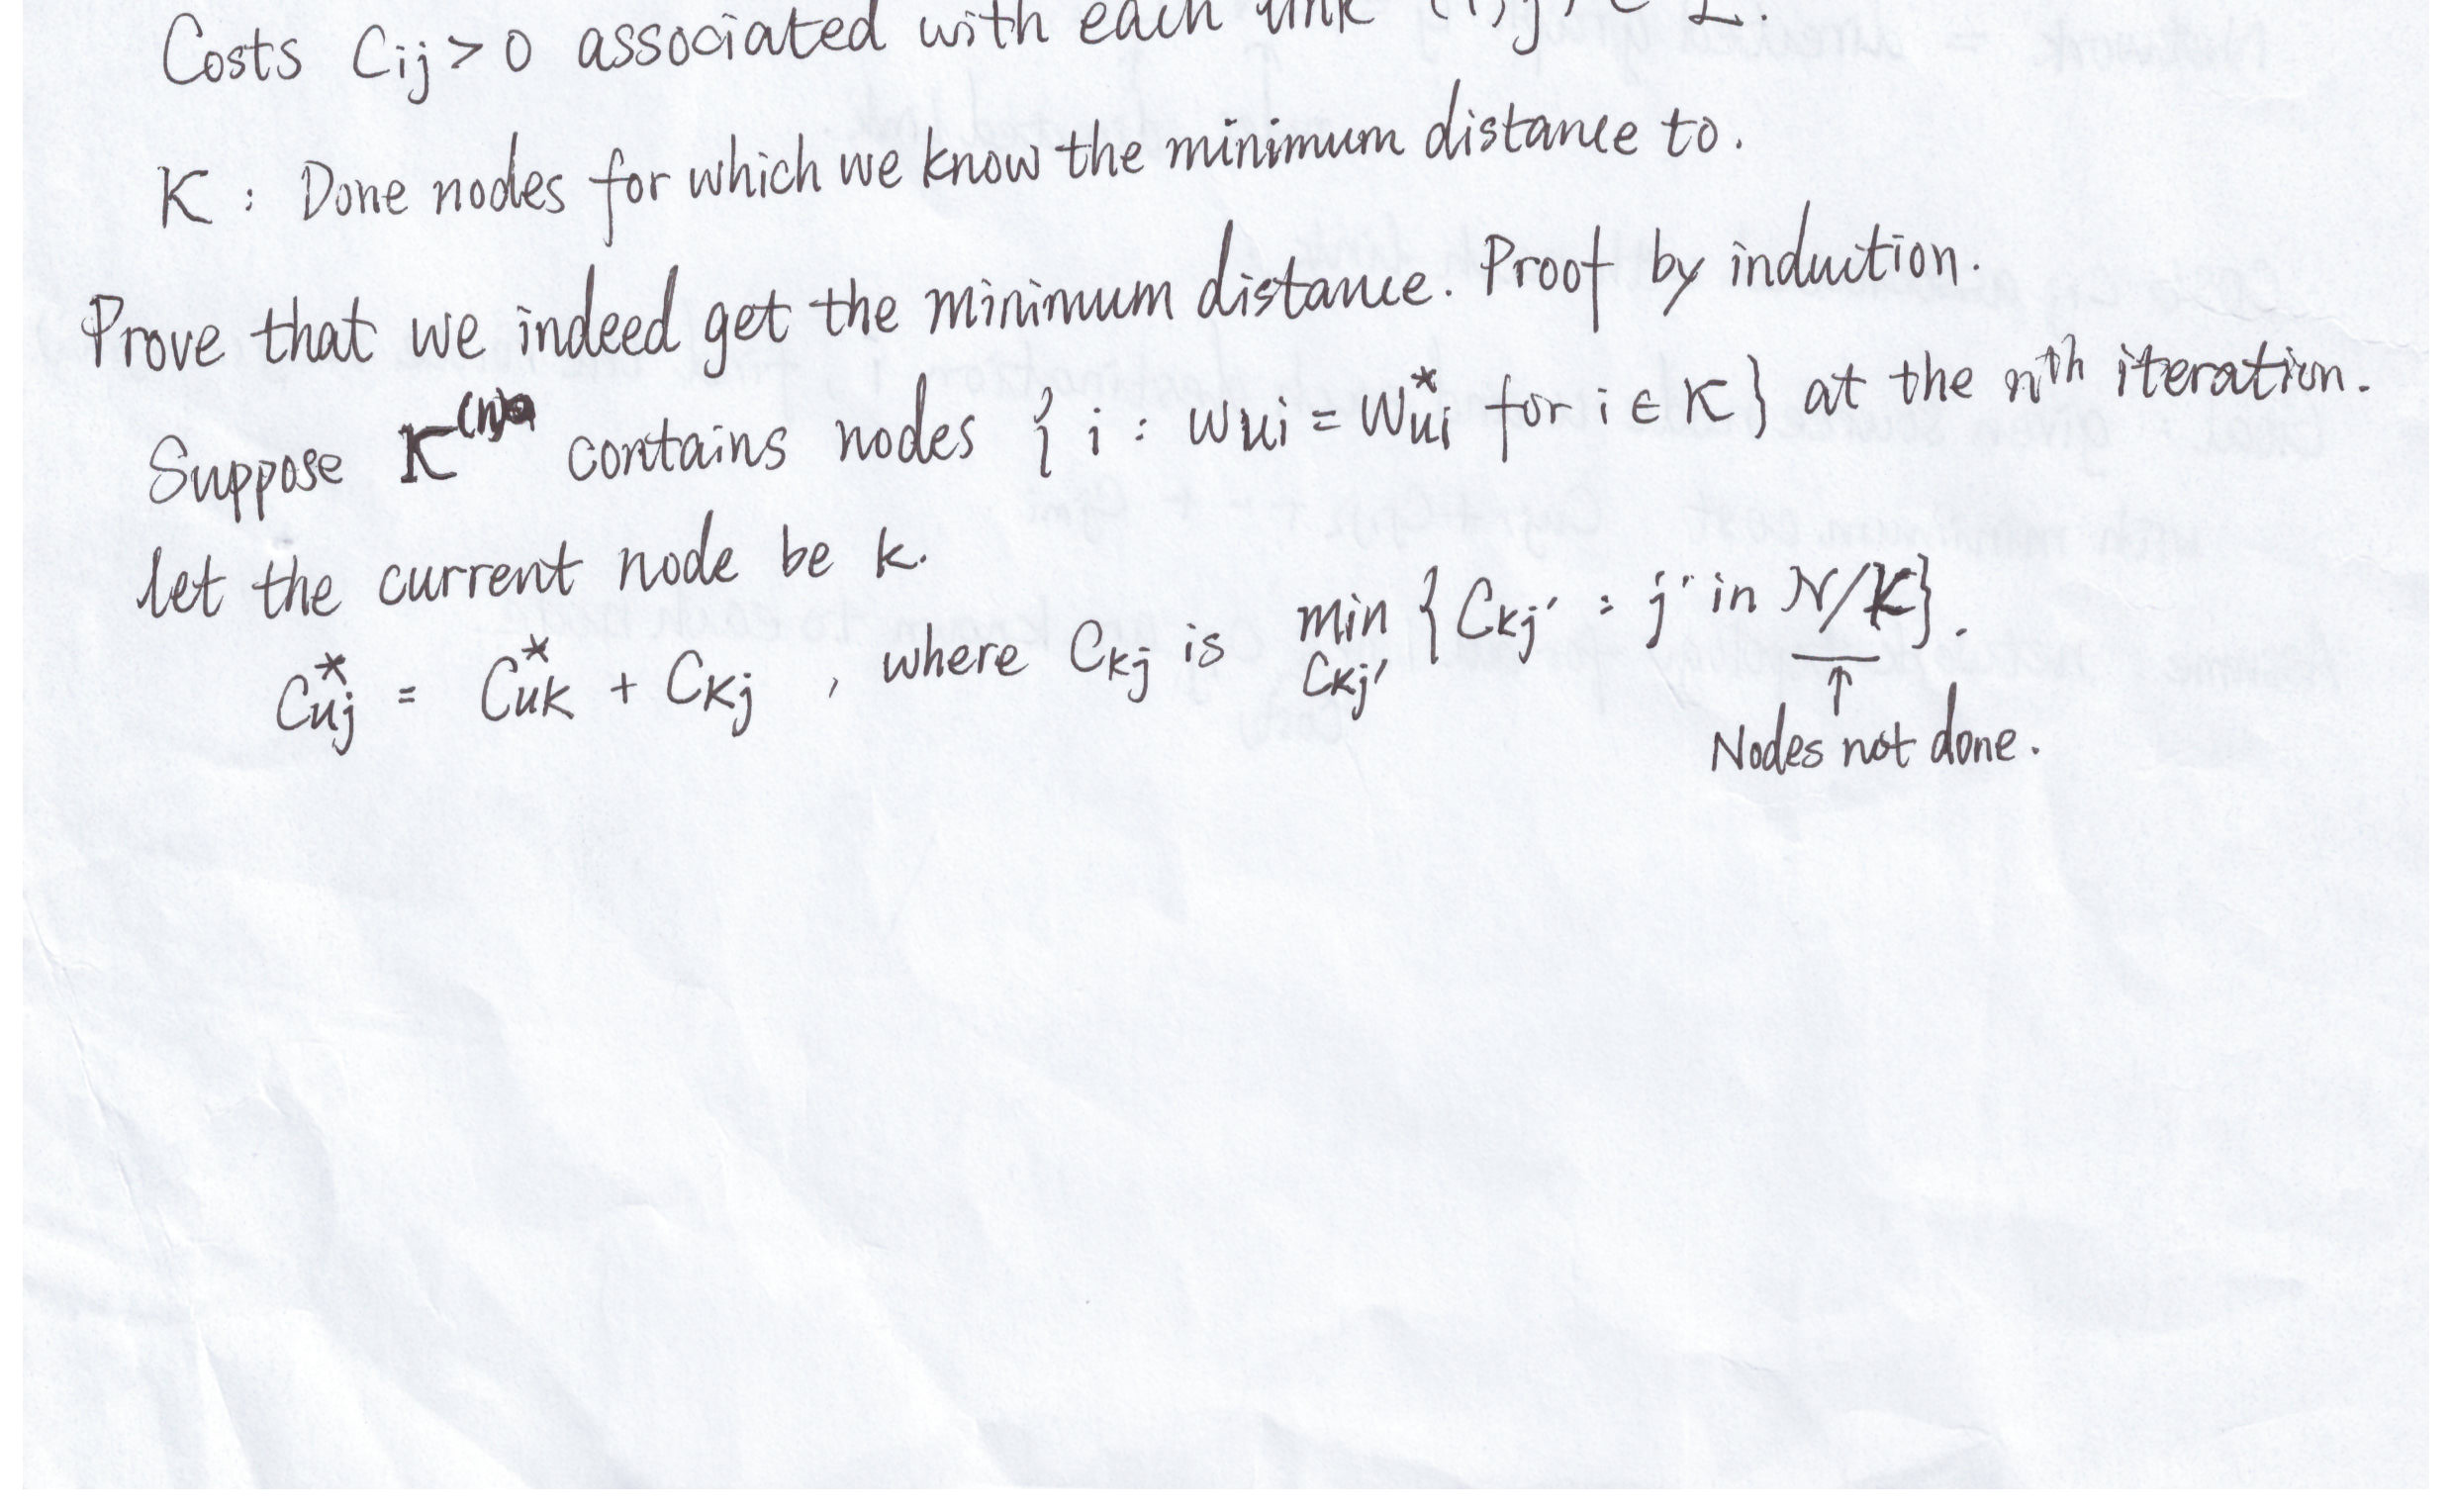 Costs Cij > 0 associated with each link (i,j) ∈ L.
K : Done nodes for which we know the minimum distance to.
Prove that we indeed get the minimum distance. Proof by induction.
Suppose K^(n) contains nodes { i : Wui = W*ui for i ∈ K } at the nth iteration.
let the current node be k.
C*uj = C*uk + Ckj , where Ckj is min Ckj' { Ckj' : j' in N/K }.
↑
Nodes not done.